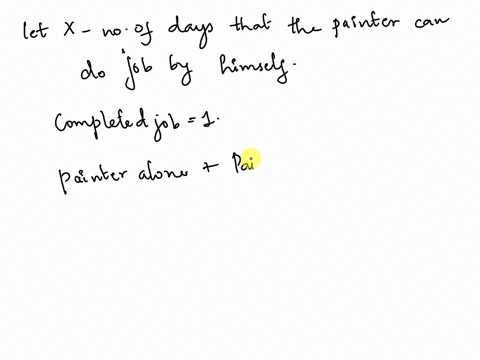 let X - no. of days that the painter can
do job by himself.
Completed job = 1.
painter alone + Pai